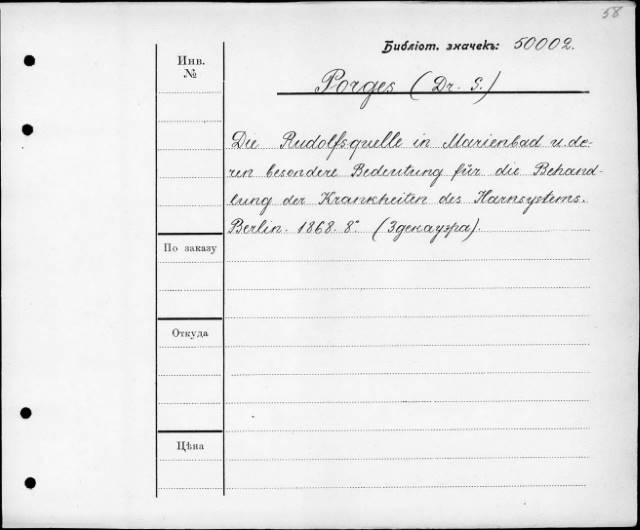 58
Библіот. значекъ: 50002.
Инв.
№
Porges (Dr. S.)
Die Rudolfsquelle in Marienbad u. de-
ren besondere Bedeutung für die Behand-
lung der Krankheiten des Harnsystems.
Berlin. 1868. 8°. (Здекауэра).
По заказу
Откуда
Цѣна